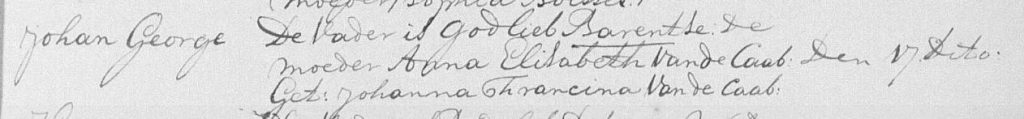 moeder Sophia Boesses.
Johan George De Vader is Godlieb Barentse. De
moeder Anna Elisabeth Van de Caab: Den 17 Dito.
Get: Johanna Francina Van de Caab: